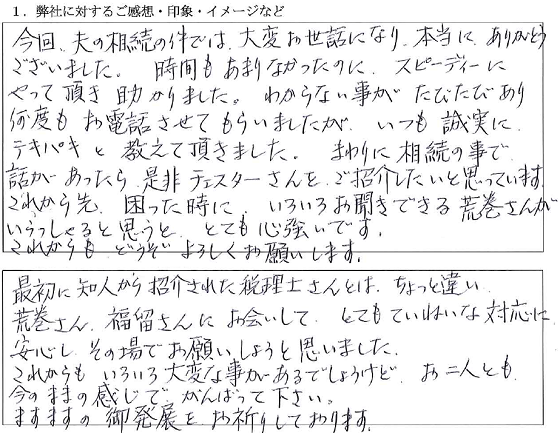 1. 弊社に対するご感想・印象・イメージなど
今回、夫の相続の件では、大変お世話になり、本当に、ありがとう
ございました。 時間もあまりなかったのに、スピーディーに
やって頂き助かりました。 わからない事が たびたびあり
何度も お電話させてもらいましたが、いつも 誠実に
テキパキと 教えて頂きました。 まわりに 相続の事で
話があったら、是非チェスターさんを、ご紹介したいと思っています。
これから先、困った時に、いろいろお聞きできる 荒巻さんが
いらっしゃると思うと、とても心強いです。
これからも どうぞ よろしくお願いします。
最初に知人から紹介された税理士さんとは、ちょっと違い、
荒巻さん、福留さんに お会いして、とてもていねいな対応に
安心し、その場でお願いしようと思いました。
これからもいろいろ大変な事があるでしょうけど、お二人とも、
今のままの感じで がんばって下さい。
ますますの 御発展を お祈りしております。